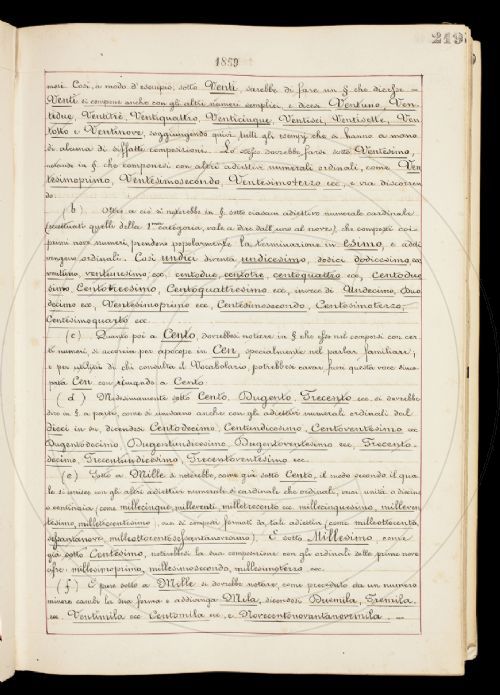 219
1859
mesi. Così, a modo d'esempio, sotto Venti, sarebbe di fare un § che dicesse =
Venti si compone anche con gli altri numeri semplici, e dicesi Ventuno, Ven-
tidue, Ventitrè, Ventiquattro, Venticinque, Ventisei, Ventisette, Ven-
totto e Ventinove, soggiungendo quivi tutti gli esempj che si hanno a mano
di alcuna di siffatte composizioni. Lo stesso dovrebbe farsi sotto Ventesimo,
notando in § che componesi con altri adiettivi numerali ordinali, come Ven
tesimoprimo, Ventesimosecondo, Ventesimoterzo ecc., e via discorren
do.
(b) Oltre a ciò si noterebbe in § sotto ciascun adiettivo numerale cardinale
(eccettuati quelli della 1ma categoria, vale a dire dall'uno al nove), che composti coi
primi nove numeri, prendono popolarmente la terminazione in esimo, e addi
vengono ordinali. Così undici diventa undicesimo, dodici dodicesimo,
ventuno, ventunesimo, ecc. centodue, centotre, centoquattro ecc, Centodue
simo, Centotreesimo, Centoquattresimo ecc, invece di Undecimo, Duo
decimo ecc, Ventesimoprimo ecc, Centesimosecondo, Centesimoterzo,
Centesimoquarto ecc
(c) Quanto poi a Cento, dovrebbesi notare in § che esso nel comporsi con cer
ti numeri si accorcia per apocope in Cen, specialmente nel parlar familiare;
e per utilità di chi consulta il Vocabolario, potrebbesi cavar fuori questa voce sinco
pata Cen con rimando a Cento.
(d) Medesimamente sotto Cento, Dugento, Trecento ecc. si dovrebbe
dire in § a parte, come si uniscano anche con gli adiettivi numerali ordinali dal
dieci in su, dicendosi Centodecimo, Centundicesimo, Centoventesimo ecc
Dugentodecimo, Dugentundicesimo, Dugentoventesimo ecc, Trecento-
decimo, Trecentundicesimo, Trecentoventesimo ecc.
(e) Sotto a Mille si noterebbe, come già sotto Cento, il modo secondo il qua
le si unisce con gli altri adiettivi numerali sì cardinali che ordinali, sieno unità o diecine
o centinaja (come millecinque, milleventi, milletrecento ecc. millecinquesimo, milleven
tesimo, milletrecentesimo), sia di composti formati da tali adiettivi (come milleottocento,
sessantanove, milleottocentosessantanovesimo). E sotto Millesimo, come
già sotto Centesimo, noterebbesi la sua composizione con gli ordinali delle prime nove
cifre: millesimoprimo, millesimosecondo, millesimoterzo ecc. ecc.
(f) E pure sotto a Mille si dovrebbe notare, come preceduto da un numero
minore cambi la sua forma e addivenga Mila, dicendosi Duemila, Tremila
ecc Ventimila ecc Centomila ecc, e Novecentonovantanovemila. —